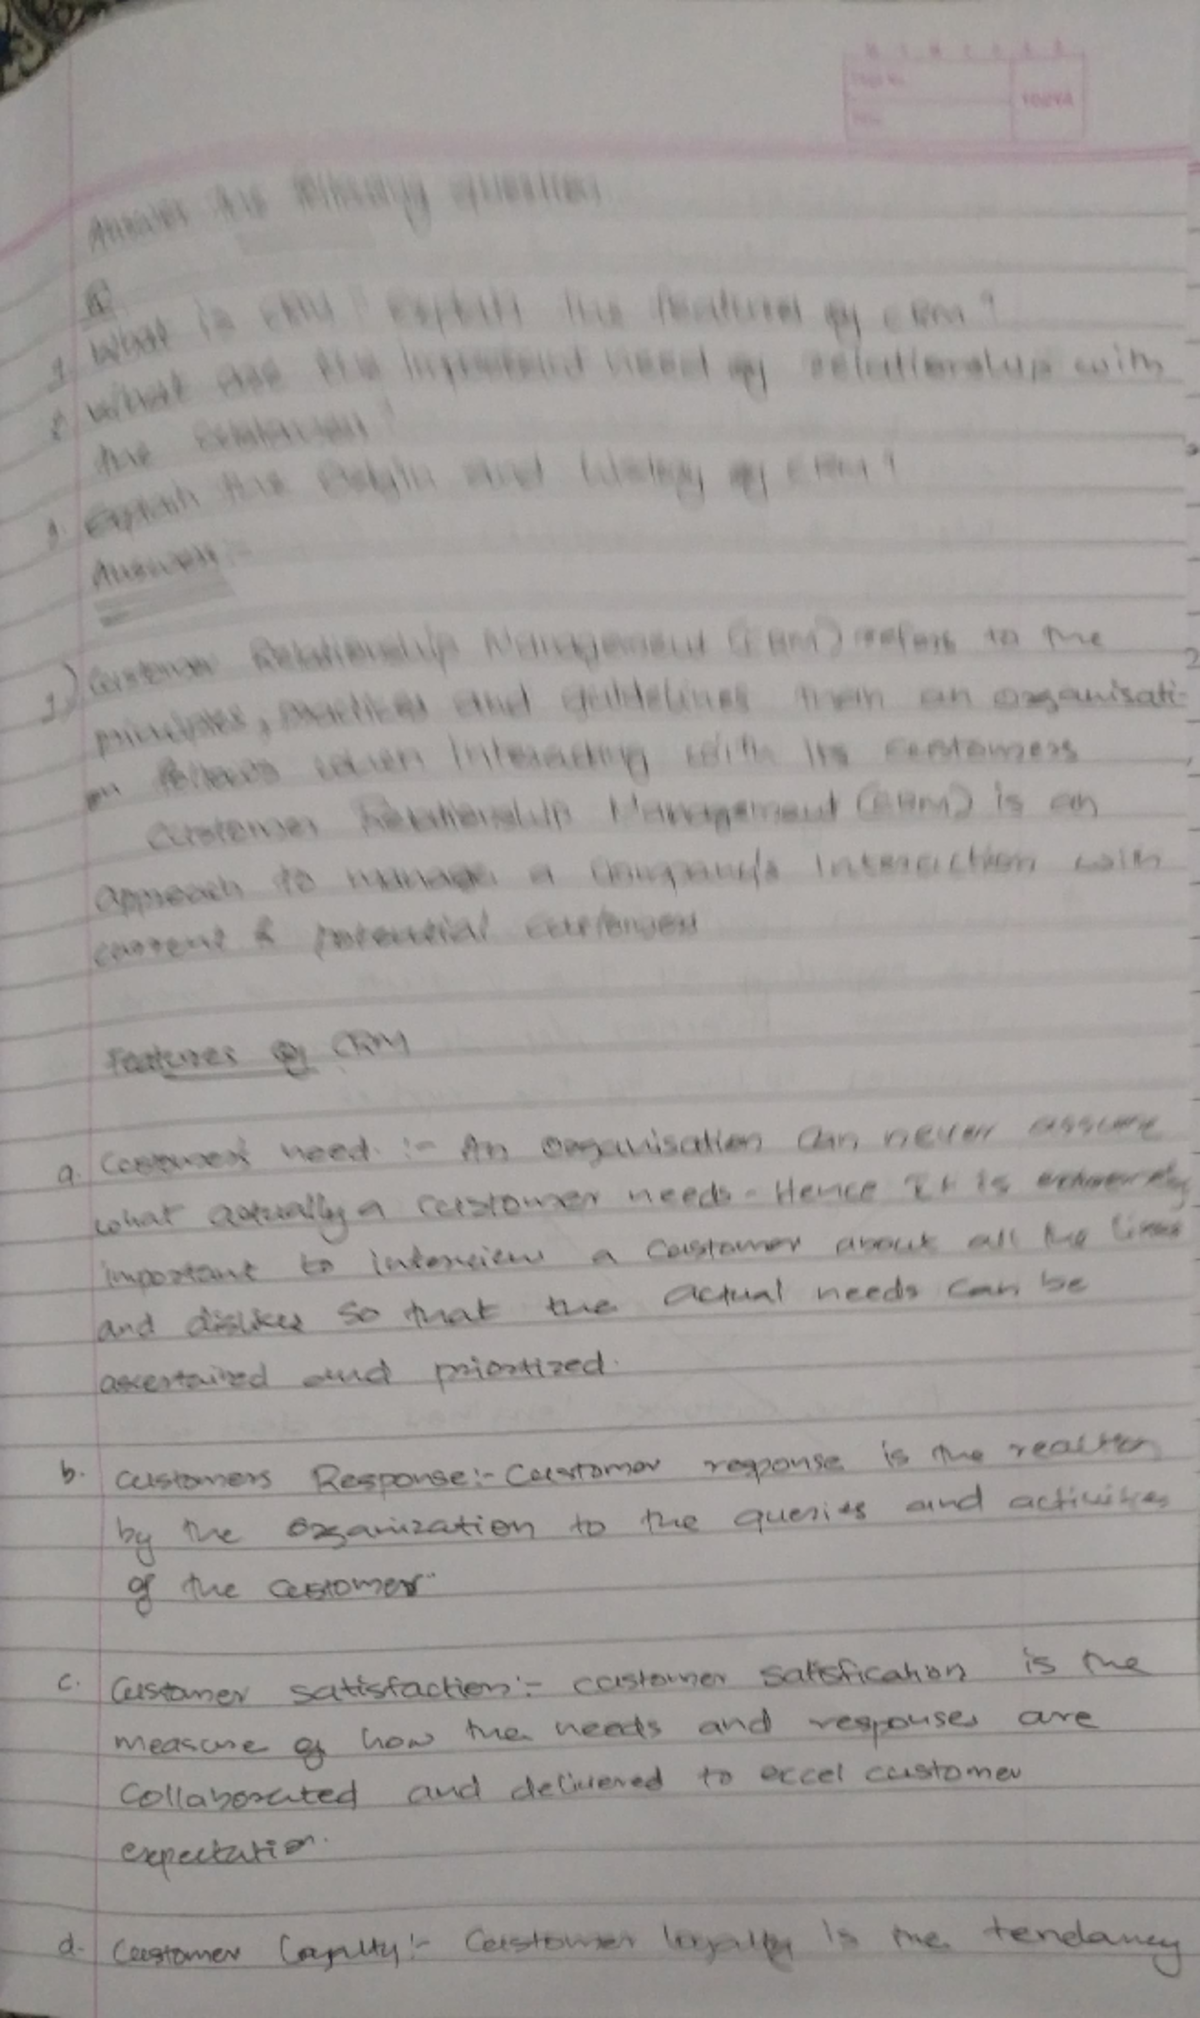 Answer the following question
1. What is CRM? Explain the features of CRM?
2. What are the important need of relationship with
the customers?
3. Explain the Origin and history of CRM?
Answers :-
1) Customer Relationship Management (CRM) refers to the
principles, practices and guidelines then an organisati-
on follows when interacting with its customers
Customer Relationship Management (CRM) is an
approach to manage a company's interaction with
current & potential customers
Features of CRM
a. Customers need :- An organisation can never assume
what actually a customer needs. Hence It is extremely
important to interview a customer about all the likes
and dislikes so that the actual needs can be
ascertained and priortized.
b. Customers Response:- Customer response is the reaction
by the organization to the queries and activities
of the customer.
c. Customer satisfaction:- customer satisfication is the
measure of how the needs and responses are
collaborated and delivered to excel customer
expectation.
d. Customer Loyalty:- Customer loyalty is the tendancy